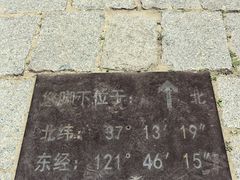 您脚下位于： ↑ 北
北纬： 37° 13′ 19″
东经： 121° 46′ 15″